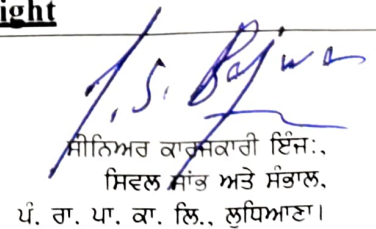 ight
J. S. Bajwa
ਸੀਨਿਅਰ ਕਾਰਜਕਾਰੀ ਇੰਜ:,
ਸਿਵਲ ਸਾਂਭ ਅਤੇ ਸੰਭਾਲ,
ਪੰ. ਰਾ. ਪਾ. ਕਾ. ਲਿ., ਲੁਧਿਆਣਾ।